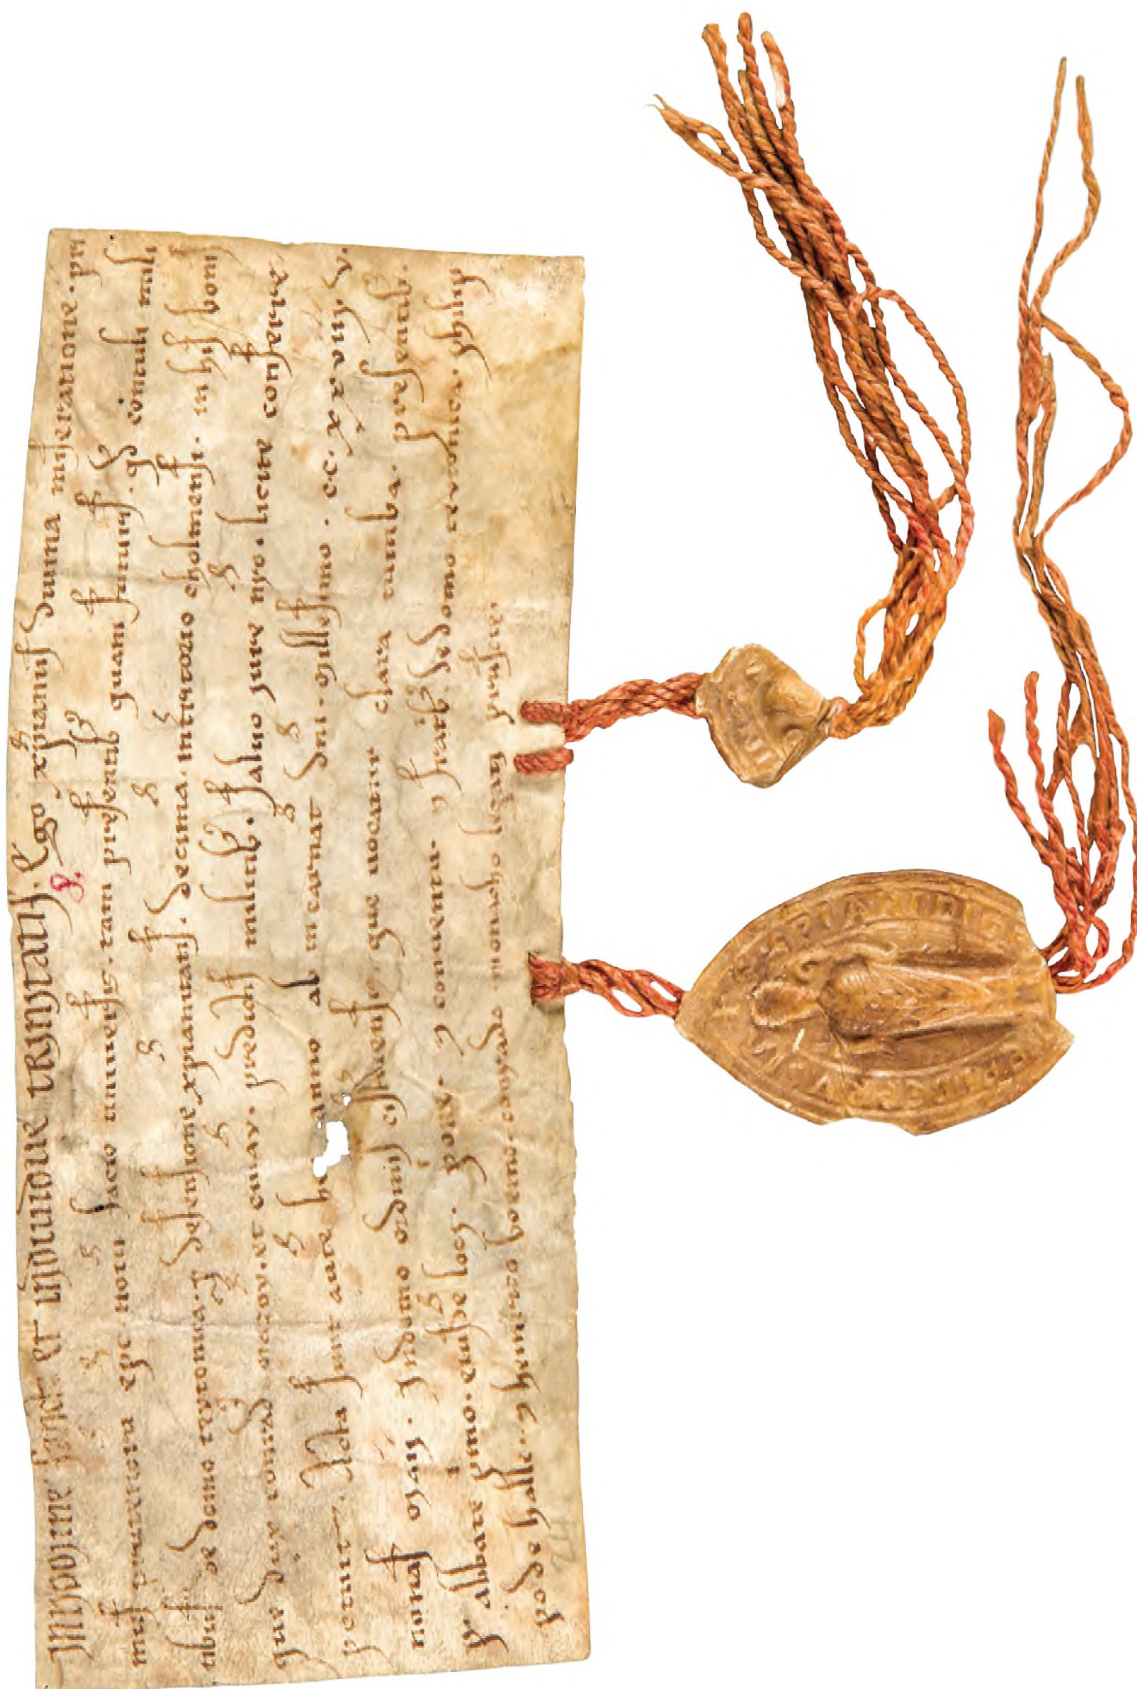 In nomine sancte et individue trinitatis. Ego xpianus divina miseratione. pri
mus prutenoru epc. notu facio universis. tam presentib quam futuris. qd cotuli mili
tibus de domo teutonica. p defensione xpianitatis. decima in tritorio cholmensi. in his bonis
que dux conrad mazov. et cuiav. predictis militib. salvo jure nro. licite conferre.
potuit. Acta sunt aute he anno ab incarnat dni. millesimo. cc. xxviij. v.
nonas maij. In domo ordinis que vocatur clara tumba. presentib.
abbate eiusde loci. priore. 7 conventu. 7 fratrib de domo teutonica.
po de halle. 7 heinrico boemo. conrado monacho
8.